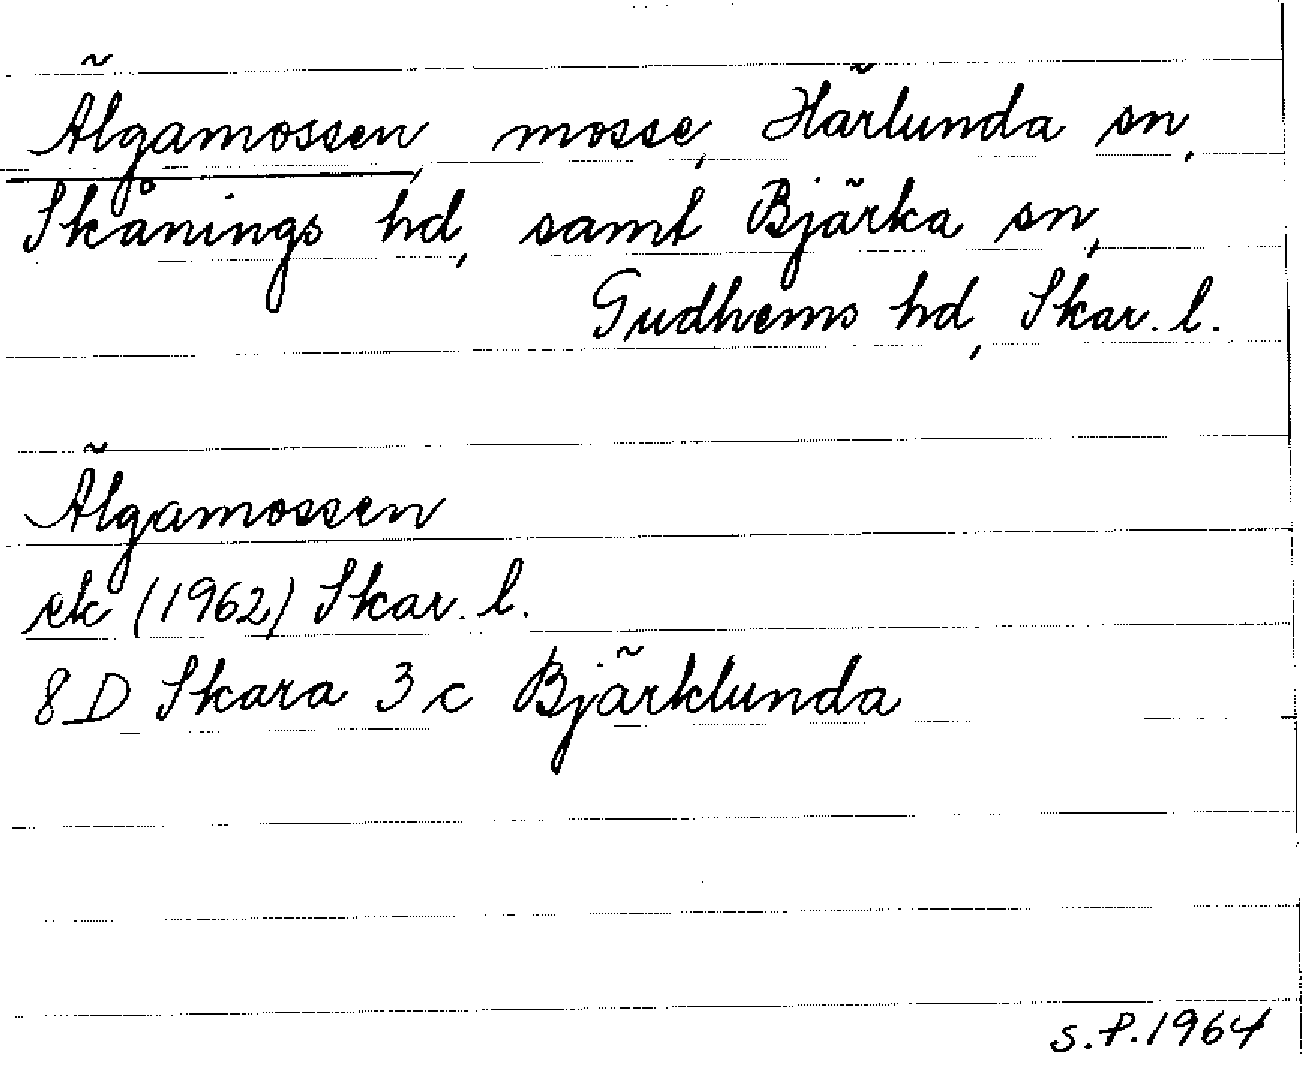 Älgamossen, mosse, Härlunda sn,
Skånings hd, samt Bjärka sn,
Gudhems hd, Skar. l.
Älgamossen
ek (1962) Skar. l.
8 D Skara 3 c Bjärklunda
S.P.1964